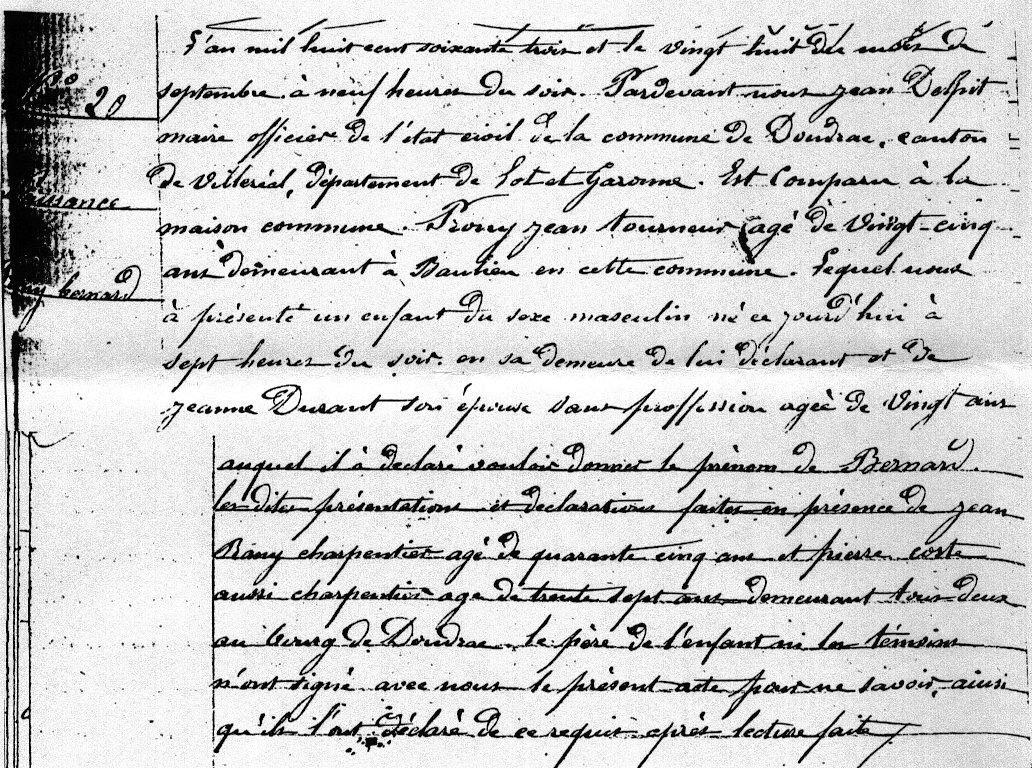 L'an mil huit cent soixante trois et le vingt huit du mois de
septembre à neuf heures du soir. Pardevant nous Jean Delpit
maire officier de l'état civil de la commune de Doudrac, canton
de Villeréal, département de Lot et Garonne. Est Comparu à la
maison commune. Prony Jean tourneur agé de vingt-cinq
ans demeurant à en cette commune. Lequel nous
à présenté un enfant du sexe masculin né ce jourd'hui à
sept heures du soir en sa demeure de lui déclarant et de
Jeanne Durant son épouse sans proffession agée de vingt ans
auquel il à déclaré vouloir donner le prénom de Bernard.
les dites présentations et déclarations faites en présence de Jean
charpentier agé de quarante cinq ans et pierre coste
aussi charpentier age de trente sept ans demeurant tous deux
au bourg de Doudrac le père de l'enfant ni les témoins
n'ont signé avec nous le présent acte pour ne savoir, ainsi
qu'ils l'ont déclaré de ce requis après lecture faite
N° 20
issance
ny bernard